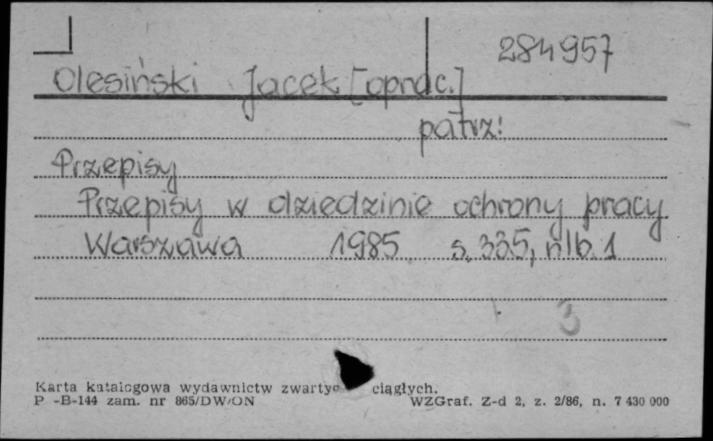 284957
Olesiński Jacek [oprac.]
patrz:
Przepisy
Przepisy w dziedzinie ochrony pracy
Warszawa 1985 s. 335, nlb. 1
3
Karta katalogowa wydawnictw zwartyc ciągłych.
P -B-144 zam. nr 865/DW/ON WZGraf. Z-d 2, z. 2/86, n. 7 430 000